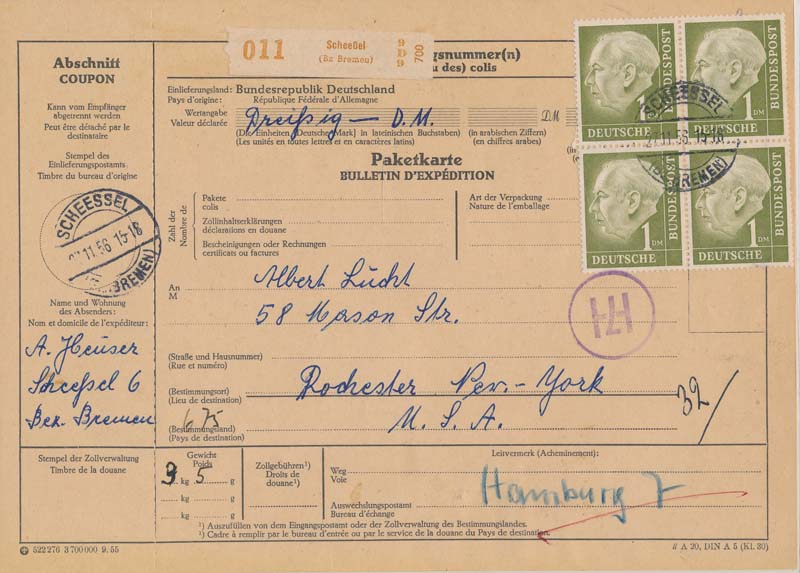 Abschnitt
COUPON
Kann vom Empfänger
abgetrennt werden
Peut être détaché par le
destinataire
Stempel des
Einlieferungspostamts
Timbre du bureau d'origine
SCHEESSEL
11.56 15-18
BREMEN)
Name und Wohnung
des Absenders:
Nom et domicile de l'expéditeur:
A. Heuser
Scheeßel 6
Bez. Bremen
011 Scheeßel
(Bz Bremen)
9
D
9
700
gsnummer(n)
u des) colis
Einlieferungsland: Bundesrepublik Deutschland
Pays d'origine: République Fédérale d'Allemagne
Wertangabe
Valeur déclarée Dreißig — D.M. DM
(Die Einheiten [Deutsche Mark] in lateinischen Buchstaben) (in arabischen Ziffern)
(Les unités en toutes lettres et en caractères latins) (en chiffres arabes)
Paketkarte
BULLETIN D'EXPÉDITION
Zahl der
Nombre de
Pakete
colis
Zollinhaltserklärungen
déclarations en douane
Bescheinigungen oder Rechnungen
certificats ou factures
Art der Verpackung
Nature de l'emballage
DEUTSCHE BUNDESPOST
1 DM
DEUTSCHE BUNDESPOST
1 DM
DEUTSCHE BUNDESPOST
1 DM
DEUTSCHE BUNDESPOST
1 DM
SCHEESSEL
11.56 15-18
BREMEN)
An
M
Albert Lücht
58 Mason Str.
(Straße und Hausnummer)
(Rue et numéro)
(Bestimmungsort)
(Lieu de destination)
Rochester New-York
(Bestimmungsland)
(Pays de destination)
U.S.A.
675
32/
Stempel der Zollverwaltung
Timbre de la douane
Gewicht
Poids
kg 5 g
kg g
Zollgebühren¹)
Droits de
douane¹)
Leitvermerk (Acheminement):
Weg
Voie
Hamburg 7
Auswechslungspostamt
Bureau d'échange
¹) Auszufüllen von dem Eingangspostamt oder der Zollverwaltung des Bestimmungslandes.
¹) Cadre à remplir par le bureau d'entrée ou par le service de la douane du Pays de destination.
522 276 3 700 000 9. 55
A 20, DIN A 5 (Kl. 30)